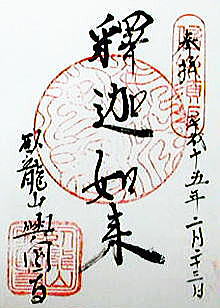 奉拝 平成十五年二月二十三日
釋迦如来
臥龍山興国寺